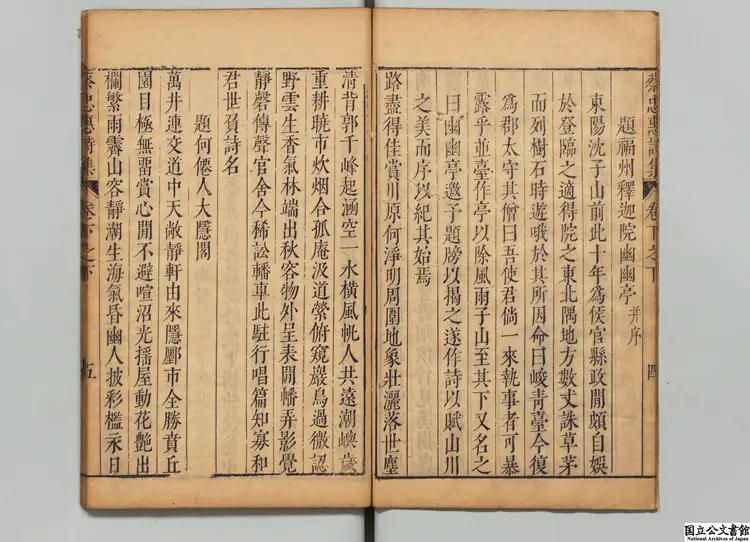 蔡忠惠詩集 卷下之下 四
題福州釋迦院幽幽亭 并序
東陽沈子山前此十年為侯官縣政閒頗自娛
於登臨之適得院之東北隅地方數丈誅草茅
而列樹石時遊哦於其所因命曰峻青臺今復
為郡太守其僧曰吾使君倘一來執事者可暴
露乎並臺作亭以除風雨子山至其下又名之
曰幽幽亭邀予題牓以揭之遂作詩以賦山川
之美而序以紀其始焉
路盡得佳賞川原何淨明周圍地象壯灑落世塵
清背郭千峰起涵空一水橫風帆人共遠潮嶼歲
重耕曉市炊烟合孤庵汲道縈俯窺巖鳥過微認
野雲生香氣林端出秋容物外呈表閒幡弄影覺
靜磬傳聲官舍今稀訟轓車此駐行唱篇知寡和
君世負詩名
題何僊人大隱閣
萬井連交道中天敞靜軒由來隱酈市全勝賁丘
園目極無留賞心閒不避喧沼光搖屋動花艷出
欄繁雨霽山容靜潮生海氣昏幽人披彩檻永日
蔡忠惠詩集 卷下之下 五
国立公文書館
National Archives of Japan